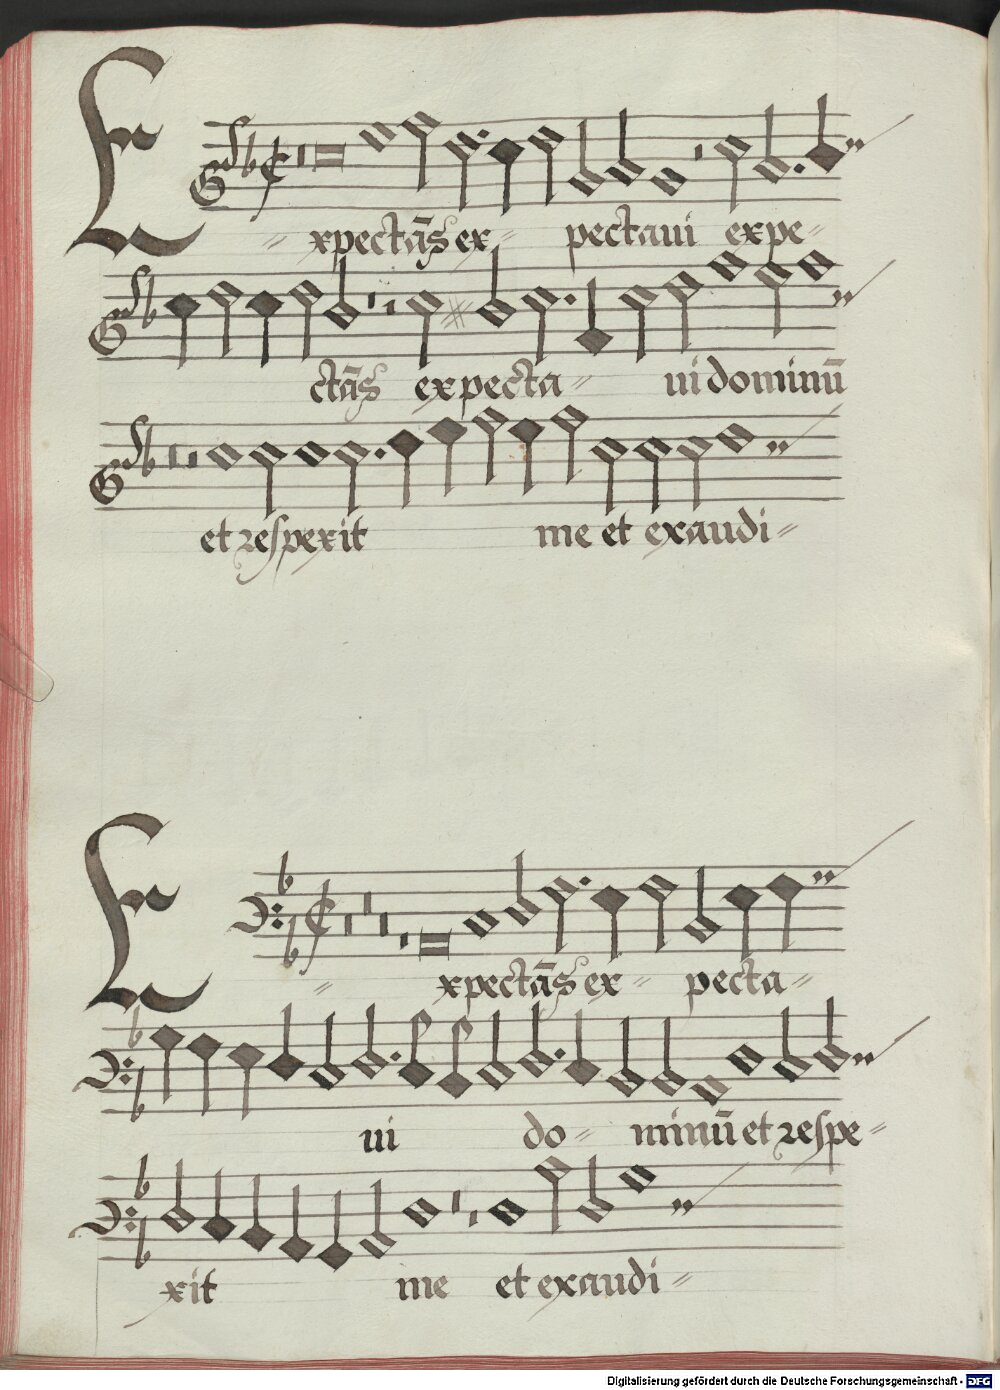 Expectās ex= pectaui expe=
ctās expecta= ui dominū
et respexit me et exaudi=
Expectās ex= pecta=
ui do= minū et respe=
xit me et exaudi=
Digitalisierung gefördert durch die Deutsche Forschungsgemeinschaft - DFG